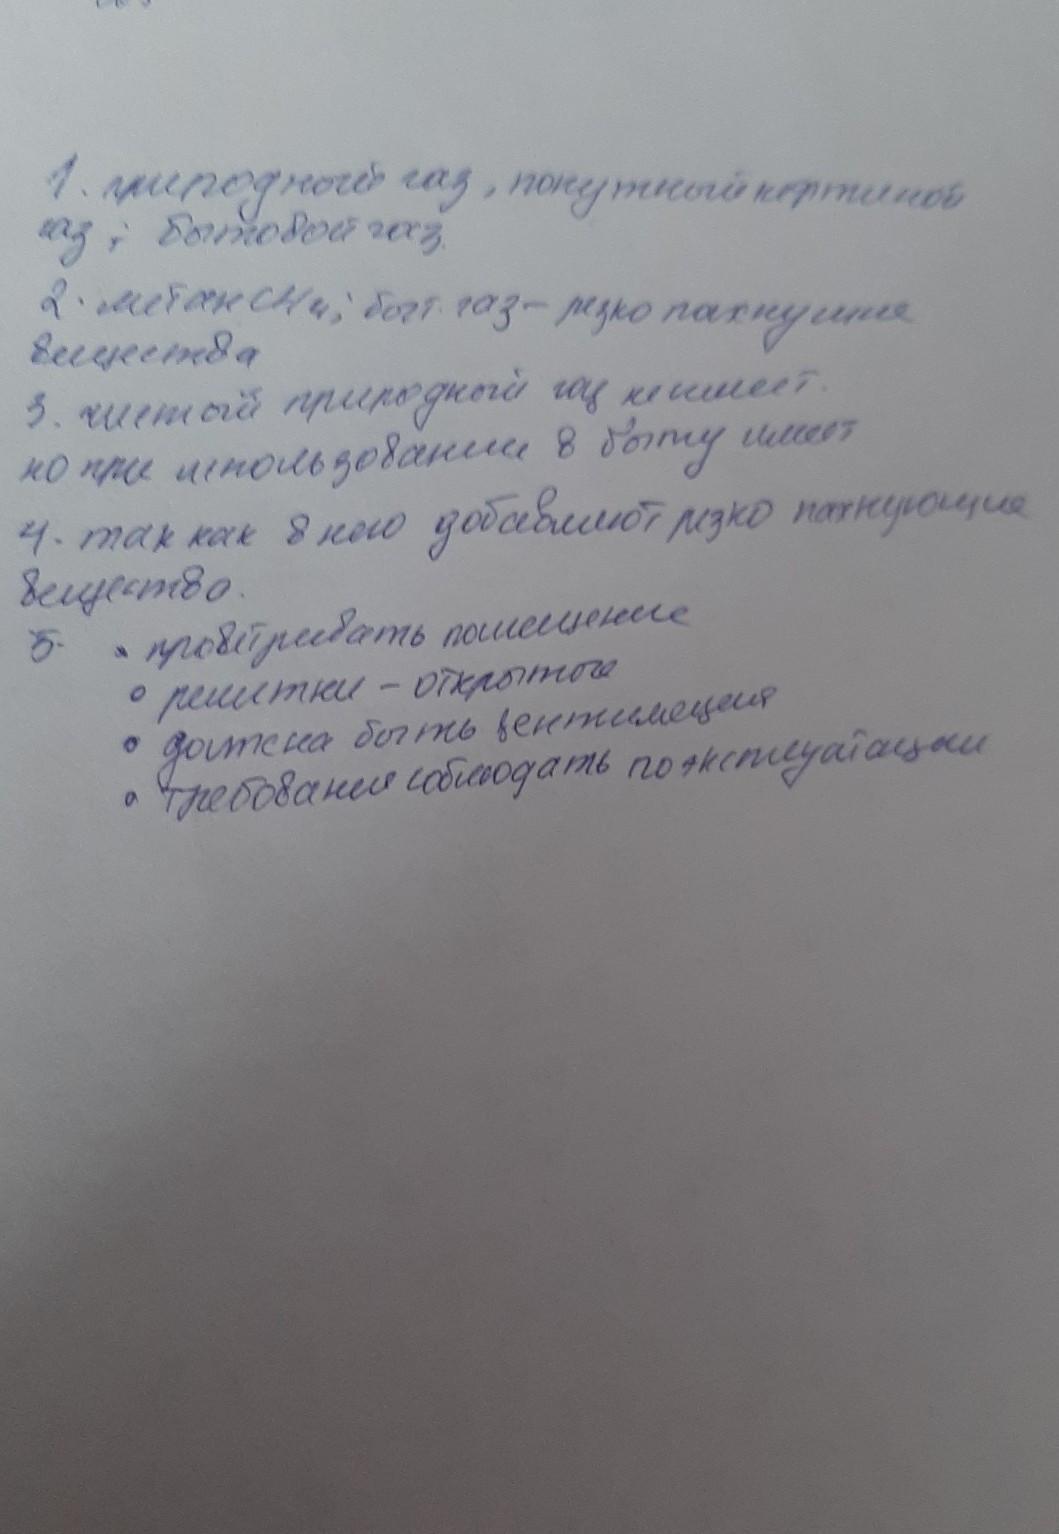 1. природный газ, попутный нефтяной
газ; бытовой газ.
2. метан CH4; быт. газ - резко пахнущие
вещества
3. чистый природный газ не имеет.
но при использовании в быту имеет
4. так как в него добавляют резко пахнующие
вещества.
5. • проветривать помещение
• решитки - открытое
• должна быть вентиляция
• требования соблюдать по эксплуатации